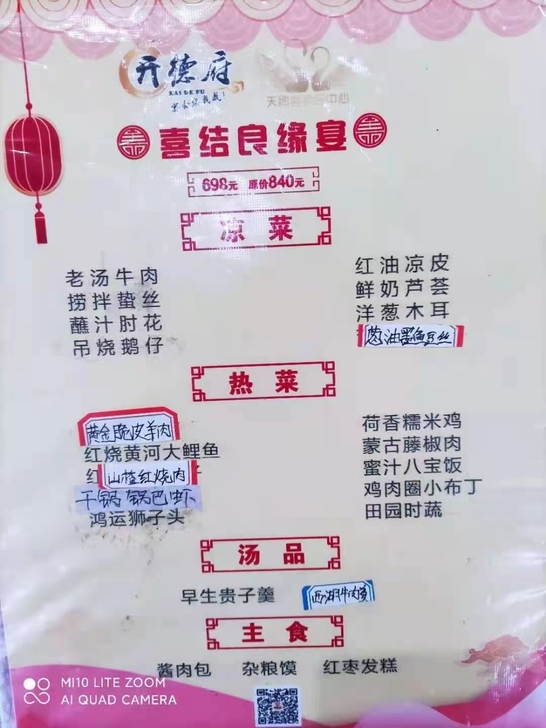 开德府
KAI DE FU
喜结良缘宴
698元 原价840元
凉菜
老汤牛肉
捞拌蛰丝
蘸汁肘花
吊烧鹅仔
红油凉皮
鲜奶芦荟
洋葱木耳
葱油墨鱼豆丝
热菜
黄金脆皮羊肉
红烧黄河大鲤鱼
山楂红烧肉
干锅锅巴虾
鸿运狮子头
荷香糯米鸡
蒙古藤椒肉
蜜汁八宝饭
鸡肉圈小布丁
田园时蔬
汤品
早生贵子羹
西湖牛肉羹
主食
酱肉包 杂粮馍 红枣发糕
MI10 LITE ZOOM
AI QUAD CAMERA